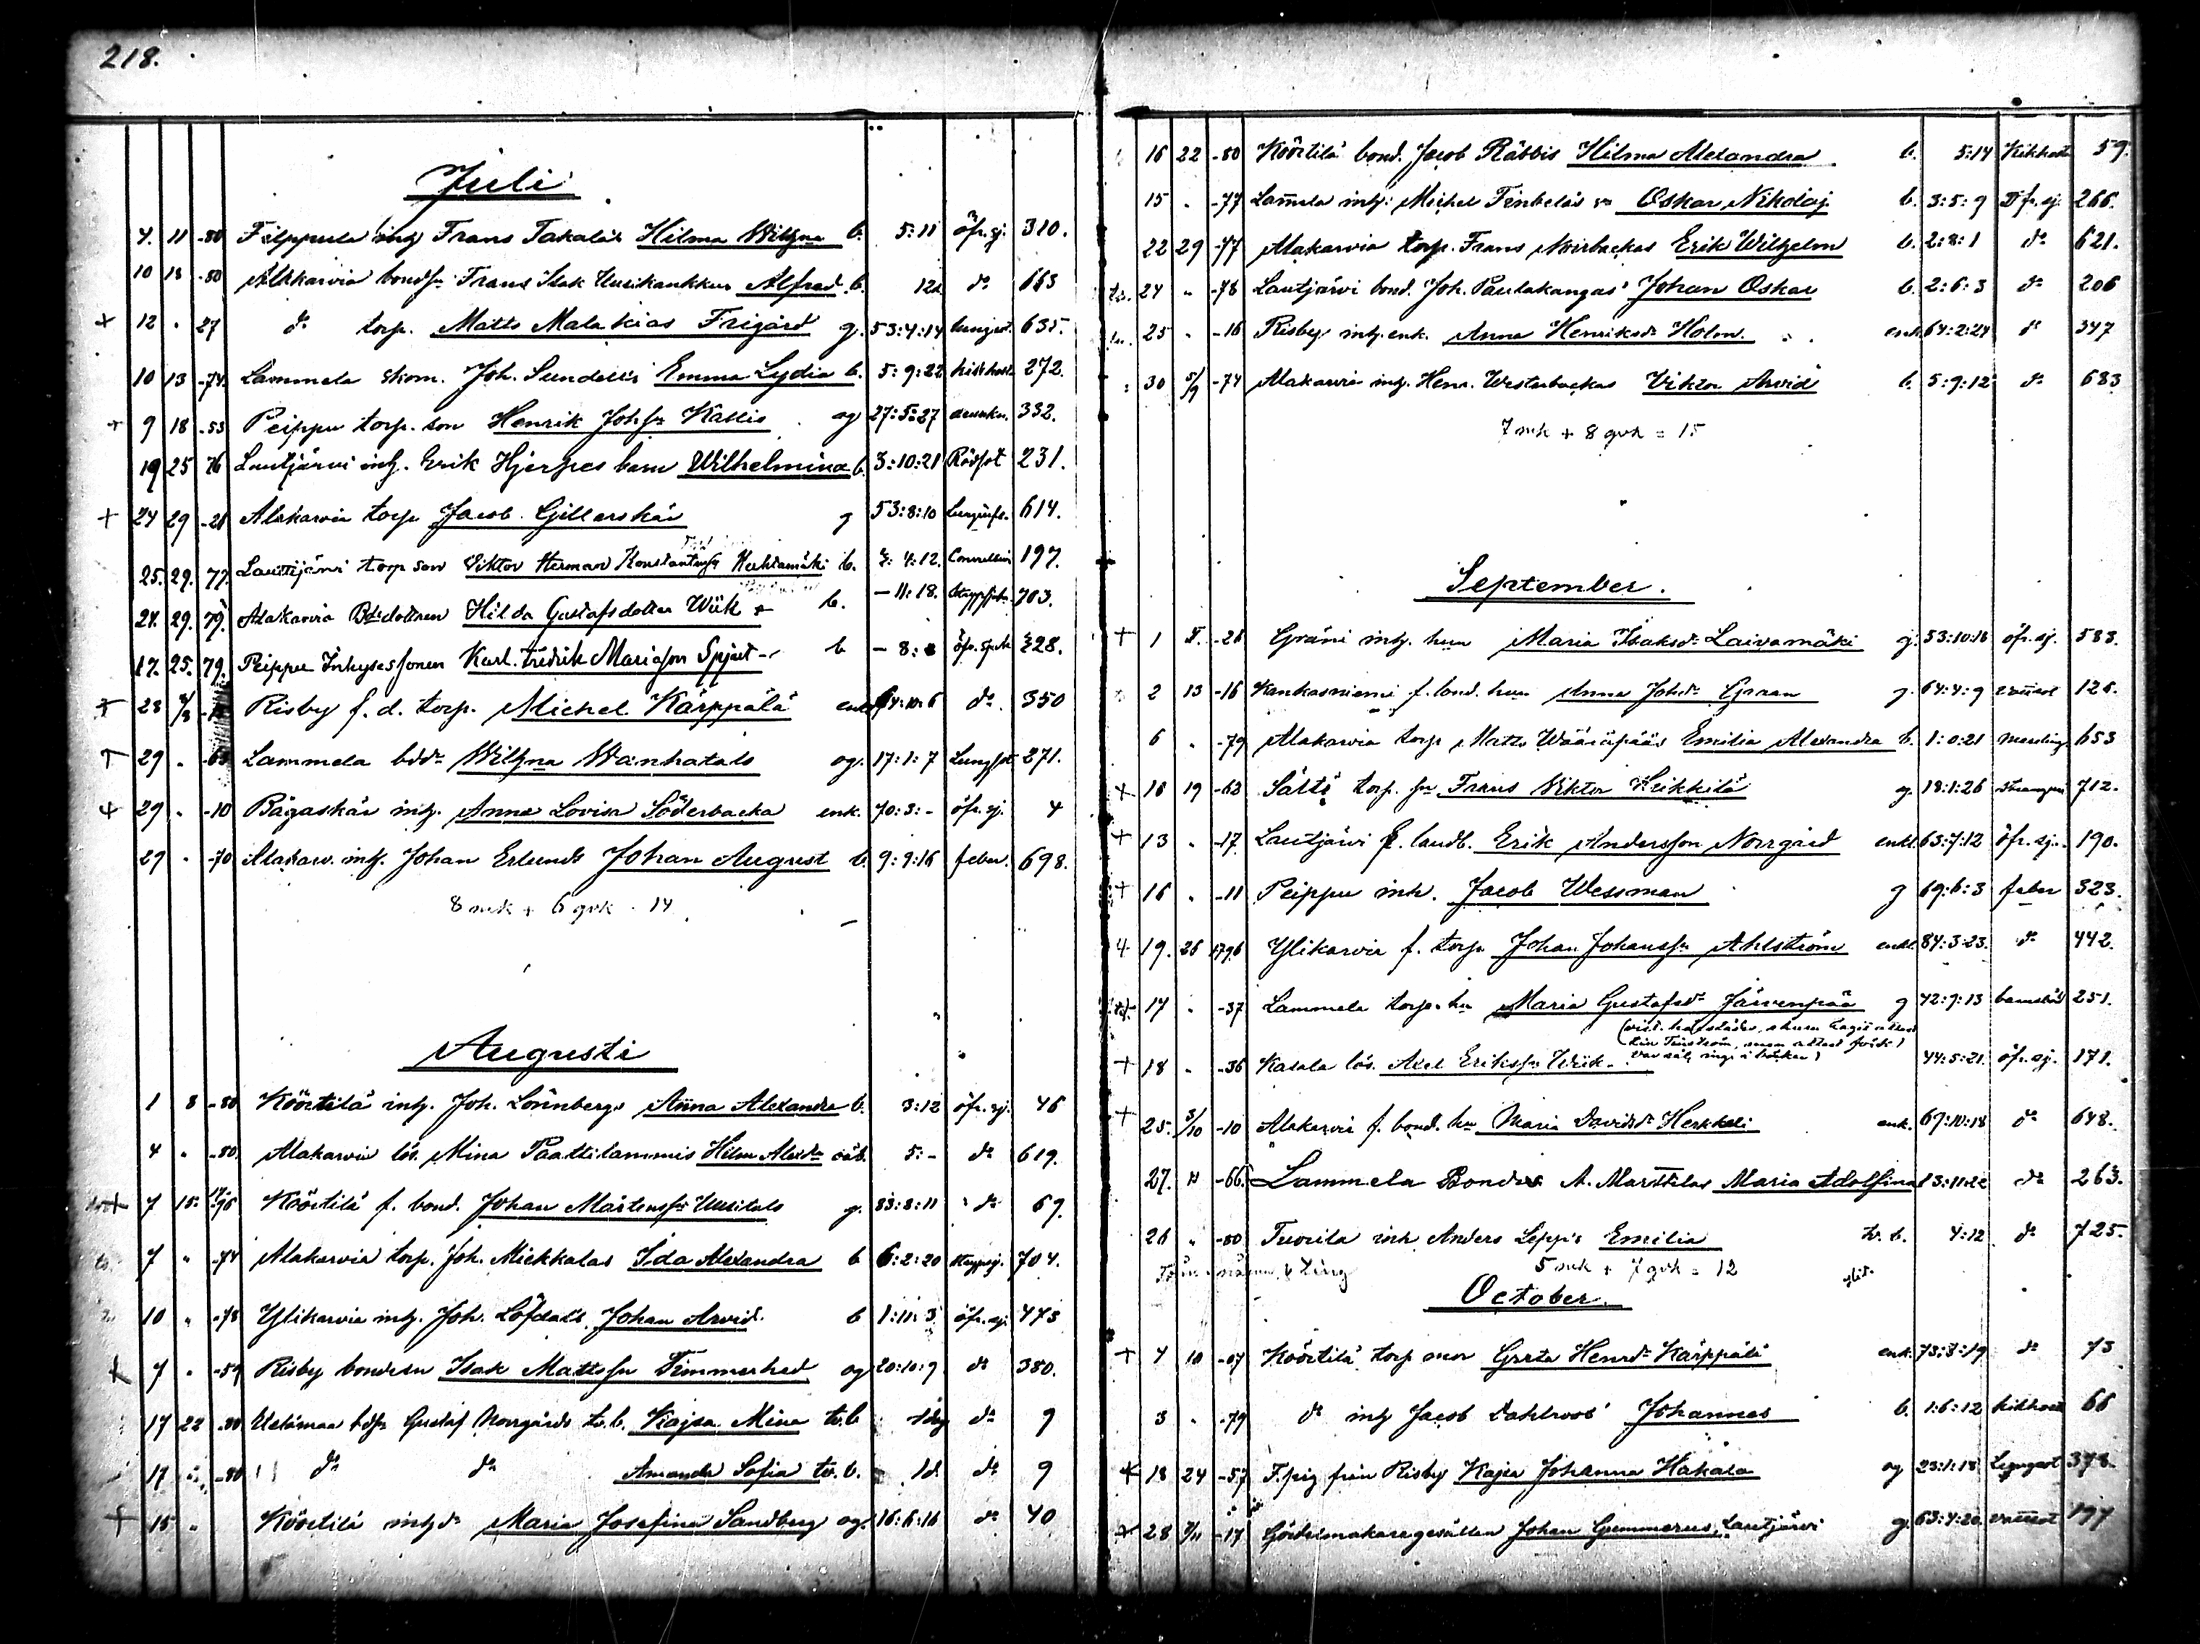 218.
Juli
4. 11 -80 Filppula inh Frans Takalas Hilma Wilhna b. 5:11 öfr. sj. 310.
10 18 -80 Alakarvia bondsn Frans Isak Uusikankkus Alfred b. 12d do 663
+ 12 . 27 do torp. Matts Malakias Frigård g. 53:4:14 lungsot. 635.
10 13 -74 Lammela skom. Joh. Sundells Emma Lydia b. 5:9:22 kikhosta 272.
+ 9 18 -53 Peippu torp. son Henrik Johsn Kallis og 27:5:27 drunkn. 332.
19 25 76 Lautjärvi inh. Erik Hjerpes barn Wilhelmina b. 3:10:21 Rödsot 231.
+ 24 29 -26 Alakarvia torp Jacob Gillerskär g 53:8:10 614.
25. 29. 77. Lauttijärvi torp son Viktor Herman Konstantinsn Huhtamäki b. 4:12. 197.
24. 29. 79. Alakarvia Bde dottren Hilda Gustafsdotter Wiik b. - 11:18. 703.
17. 25. 79. Peippu Inhysessonen Karl Fredrik Mariason Spjut b - 8: öfr. sjuk 328.
+ 23 -1 Risby f. d. torp. Michel Kärppälä enkl 64:10:6 do. 350
+ 29 . -63 Lammela bdr Wilhna Wanhatalo og. 17:1:7 Lungsot 271.
+ 29 . -10 Bågaskär inh. Anna Lovisa Söderbacka enk. 70:3:- öfr. sj. 4
29 . -70 Alakarv. inh. Johan Erlunds Johan August b. 9:9:16 feber. 698.
8 mk + 6 qvk . 14
Augusti
1 8 -80 Köörtilä inh. Joh. Lönnbergs Anna Alexandra b. 3:12 öfr. sj. 46
4 " -80 Alakarvia lös. Mina Paattilammis Hilm Alexdr oäb. 5:- do 619.
+ 7 15 1796 Köörtilä f. bond. Johan Mårtenssn Uusitalo g. 83:8:11 do 69.
7 " -74 Alakarvia torp. Joh. Miekkalas Ida Alexandra b 6:2:20 strypsj. 704.
10 " -78 Ylikarvia inh. Joh. Löfdals Johan Arvid b 1:11:3 öfr. sj. 473
+ 7 . -59 Risby bondesn Isak Mattssn Timmerhed og 20:10:9 do 380.
17 22 -80 bdsn Gustaf Norrgårds tv. b. Kajsa Mina tv. b. 1 dag do 9
17 " -80 do do Amanda Sofia tv. b. 1d. do 9
+ 15 " Köörtilä inh.dr Maria Josefina Sandberg og. 16:6:16 do 40
16 22 -80 Köörtilä bond. Jacob Räbbis Hilma Alexandra b. 5:14 Kikhosta 59.
15 . -77 Lammela inh. Michel Finbeläs sn Oskar Nikolaj b. 3:5:9 öfr. sj. 266.
22 29 -77 Alakarvia torp. Frans Norrbackas Erik Wilhelm b. 2:8:1 do 621.
24 " -78 Lautjärvi bond. Joh. Paulakangas' Johan Oskar b. 2:6:3 do 206
25 " -16 Risby inh. enk. Anna Henriksdr Holm. enk. 64:2:24 do 347
30 5/9 -74 Alakarvia inh. Henr. Westerbackas Viktor Arvid b. 5:9:12 do 683
7 mk + 8 qvk = 15
September.
+ 1 5. -26 Gräni inh. hun Maria Isaksdr Laivamäki g. 53:10:16 öfr. sj. 583.
2 13 -16 Kankasniemi f. bond. hun Anna Johdr Graan g. 64:4:9 126.
6 " -79 Alakarvia torp Matts Wääräpääs Emilia Alexandra b. 1:0:21 653
+ 16 19 -62 Sälttö torp. sn Frans Viktor Heikkilä g. 18:1:26 712.
+ 13 . -17 Lautjärvi f. landb. Erik Andersson Norrgård enkl. 63:7:12 öfr. sj. 190.
+ 16 . -11 Peippu inh. Jacob Wessman g 69:6:3 feber 323.
+ 19. 26 1796 Ylikarvia f. torp Johan Johanssn Ahlström enkl. 84:3:23. do 442.
17 . -37 Lammela torp. hu Maria Gustafsdr Järvenpää g 42:9:13 barnsbörd 251.
+ 18 . -36 Kasala lös. Axel Erikssn Wiik 44:5:21. öfr. sj. 171.
+ 25. 3/10 -10 Alakarvia f. bond. hu Maria Davidsdr Herkkeli enk. 67:10:18 do 648.
27. " -66. Lammela Bondes A. Marttilas Maria Adolfina 13:11:22 do 263.
26 " -80 Tuorila inh Anders Lepp's Emilia tv. b. 4:12 do 725.
5 mk + 7 qvk = 12
October.
+ 4 10 -07 Köörtilä torp mor Greta Henrdr Kärppälä enk. 73:8:19 do 73
3 . -79 do inh Jacob Dahlroos' Johannes b. 1:6:12 kikhosta 66
+ 18 24 -57 F. pig från Risby Kajsa Johanna Hakala og 23:1:18 Lungsot 378.
+ 28 7/11 -17 Gördelmakaregesällen Johan Gummerus, Lautjärvi g. 63:4:20. 177